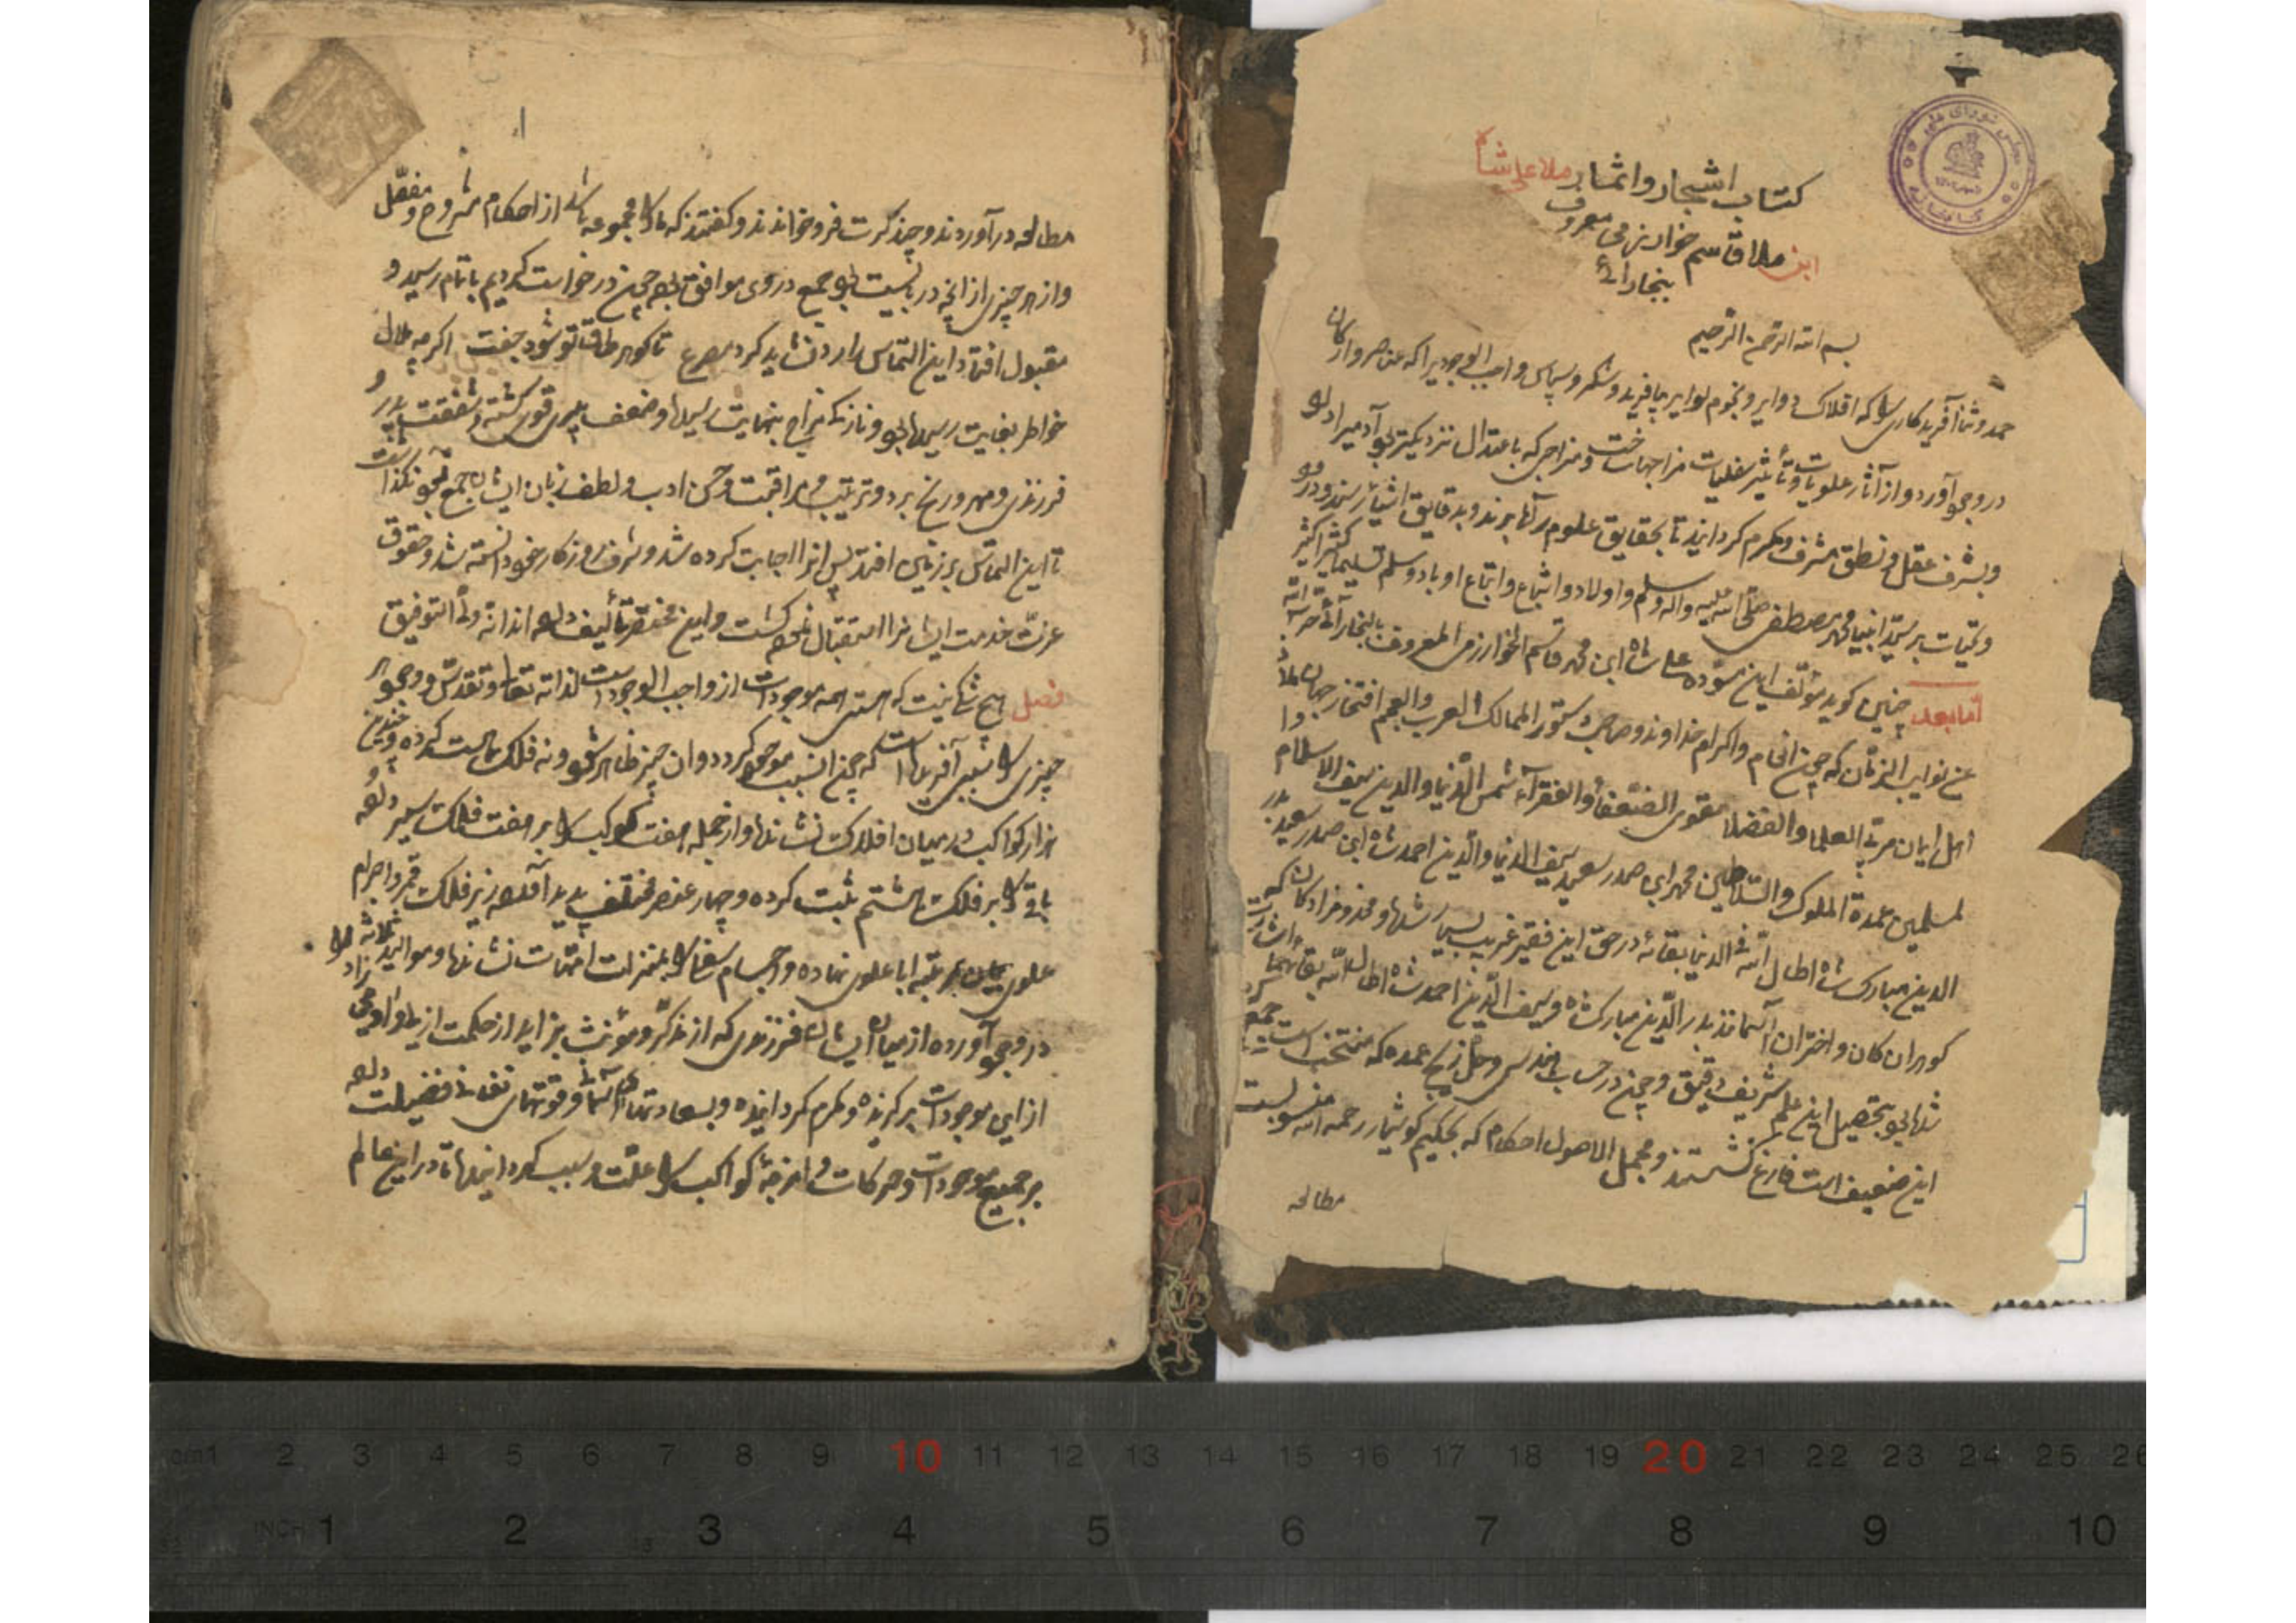 کتاب اشجار و اثمار ملا علی شاه
ابن ملا قاسم خوارزمی معروف
ببخارائی
بسم الله الرحمن الرحیم
حمد و ثنا آفریدکاری را که افلاک دوایر و نجوم لوایر بیافرید و شکر و سپاس واجب الوجودیرا که عناصر و ارکان
در وجود آورد و از آثار علویات و تأثیر سفلیات مزاجها ساخت و مزاجی که باعتدال نزدیکتر بود آدمیرا داد
و بشرف عقل و نطق مشرف و مکرم کردانید تا بحقایق علوم راه برند و بدقایق اشیا رسند و درود
و تحیات بر سید انبیا محمد مصطفی صلی الله علیه واله وسلم و اولاد و اشیاع و اتباع او باد وسلم تسلیما کثیرا کثیر
اما بعد چنین کوید مؤلف این مسوده علی شاه ابن محمد قاسم الخوارزمی المعروف بالبخارائی
عن نوایب الزمان که چون انعام و اکرام خداوند و صاحب دستور الممالک العرب والعجم افتخار جهان
اهل ایمان مربی العلما والفضلا مقوی الضعفا والفقرآء شمس الدنیا والدین سیف الاسلام
لمسلمین عمدة الملوک والسلاطین محمد ابن صدر سعید سیف الدنیا والدین احمد شاه ابن صدر سعید بدر
الدین مبارک شاه اطال الله فی الدنیا بقائه در حق این فقیر غریب بسیار شد و مخدومزادکان که
کوهران کان و اختران آسمانند بدر الدین مبارک شاه و سیف الدین احمد شاه اطال الله بقائهما
بتحصیل این علم شریف دقیق و چون در حساب هندسی و حل زیج عمده که منتخب است جمع
این ضعیف است فارغ کشتند و مجمل الاصول احکام که بحکیم کوشیار رحمه الله منسوبست
مطالعه
مطالعه در آوردند و چند کرت فرو خواندند و کفتند که ما را مجموعه باشد از احکام مشروح و مفصل
و از هر چیزی از آنچه دربایست بود جمع در وی موافق بود چون درخواست کردیم باتمام رسید و
مقبول افتاد این التماس را رد نشاید کرد مصرع تا کوهر طاق تو شود جفت اکرچه ملال
خاطر بغایت رسیده بود و نازکی مزاج بنهایت رسیده و ضعف پیری قوی کشته و شفقت پدر و
فرزندی و مهر و رنج برد و تربیت و مراقبت و حسن ادب و لطف زبان ایشان جمع بود نکذاشت
تا این التماس بر زمین افتد پس انرا اجابت کرده شد و شرف روزکار خود دانسته شد و حقوق
عزت خدمت ایشانرا استقبال نموده کشت و این مختصر تألیف داده اند انه ولی التوفیق
فصل هیچ شک نیست که هستی همه موجودات از واجب الوجودست لذاته تعالی و تقدس و وجود هر
چیزی را سببی آفریده است که چون آن سبب موجود کردد و آن چیز ظاهر شود و نه فلک راست کرده و چندین
هزار کواکب در میان افلاک نشانده و از جمله هفت کوکب را بر هفت فلک سیر داده و
باقی را بر فلک هشتم ثبت کرده و چهار عنصر مختلف پدید آورده زیر فلک قمر و اجرام
علوی بمرتبه اباء علوی نهاده و اجسام سفلی را بمنزلت امهات نشانده و موالید ثلاثه را
در وجود آورده از میان ایشان فرزندی که از مذکر و مؤنث بزاید از حکمت
از این موجودات برکزیده و مکرم کردانیده و بسعادتهاء آسمانی و قوتهای نفسانی فضیلت داده
بر جمیع موجودات و حرکات و امزجهٔ کواکب را علت و سبب کردانیده تا در این عالم